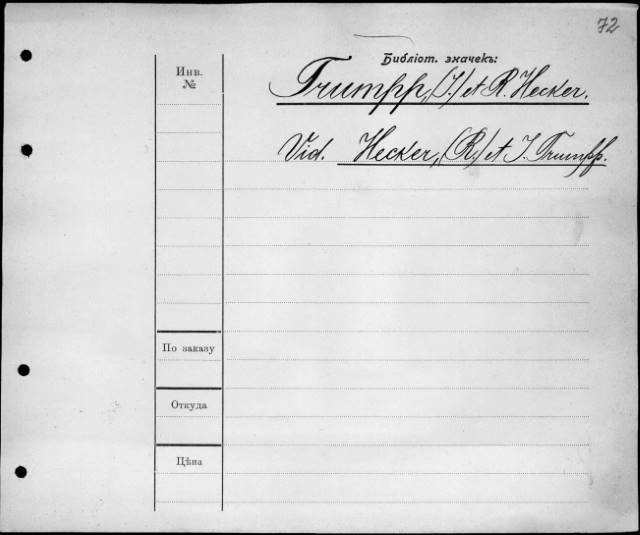 72
Библіот. значекъ:
Инв.
№
Trumpp, (J.) et R. Hecker.
Vid. Hecker, (R.) et J. Trumpp.
По заказу
Откуда
Цѣна